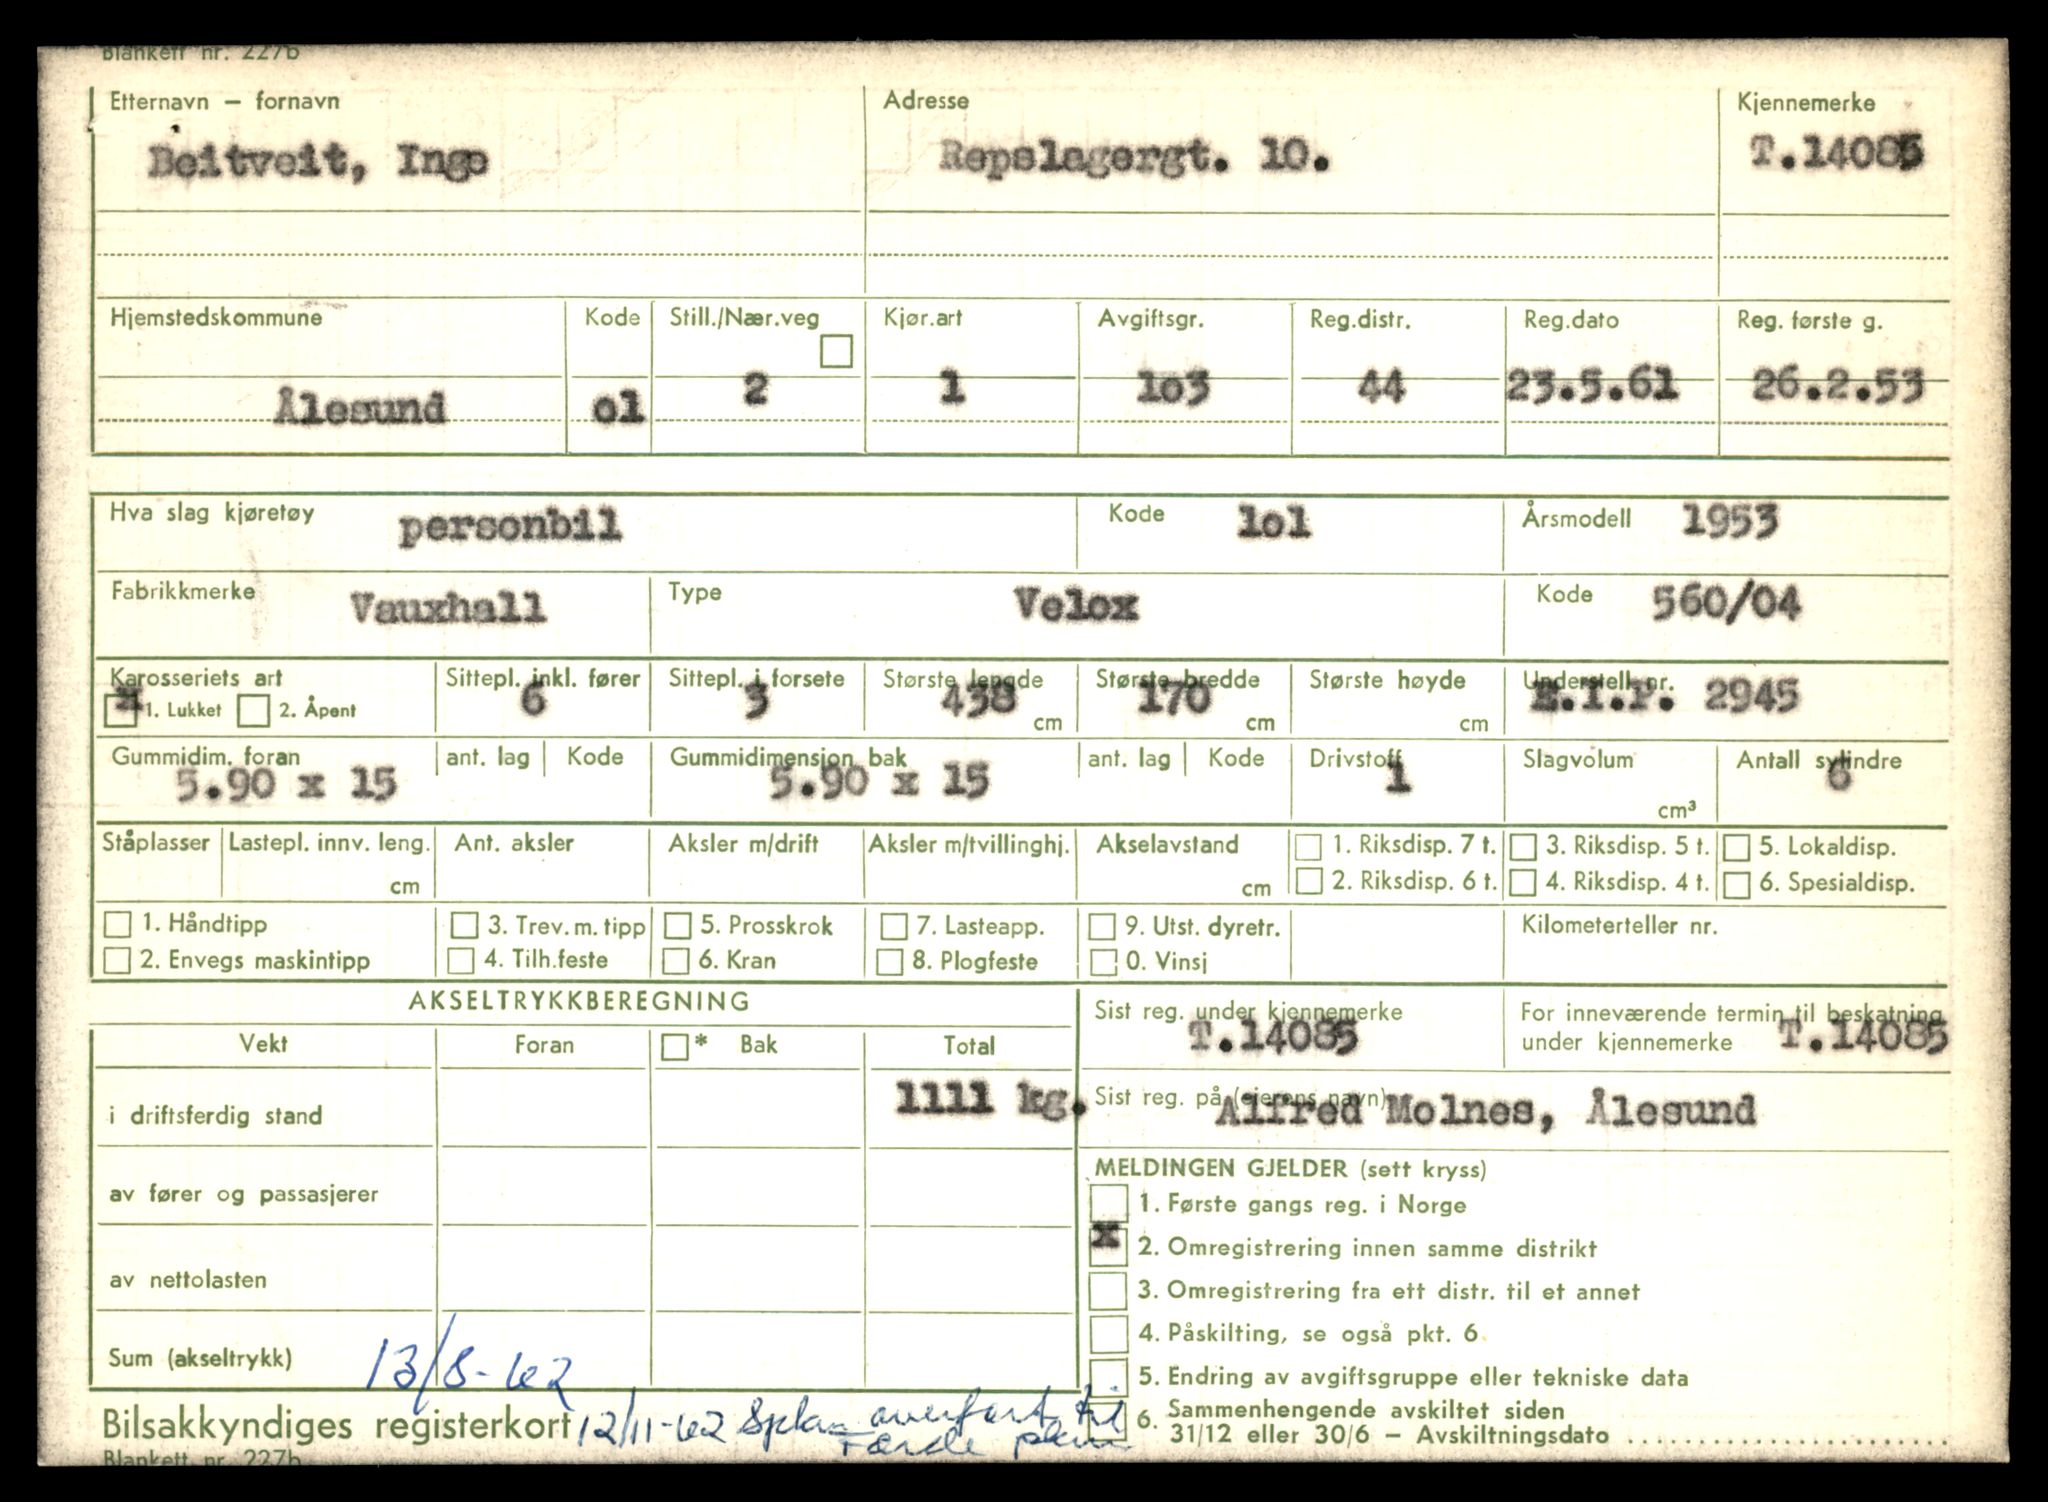 Blankett nr. 227b
Etternavn – fornavn Adresse Kjennemerke
Beitveit, Inge Repslagergt. 10. T.14085
Hjemstedskommune Kode Still./Nær.veg Kjør.art Avgiftsgr. Reg.distr. Reg.dato Reg. første g.
Ålesund ol 2 1 lo3 44 23.5.61 26.2.53
Hva slag kjøretøy personbil Kode lol Årsmodell 1953
Fabrikkmerke Vauxhall Type Velox Kode 560/04
Karosseriets art Sittepl. inkl. fører Sittepl. i forsete Største lengde Største bredde Største høyde Understell nr.
x 1. Lukket 2. Åpent 6 3 438 cm 170 cm cm E.I.P. 2945
Gummidim. foran ant. lag Kode Gummidimensjon bak ant. lag Kode Drivstoff Slagvolum Antall sylindre
5.90 x 15 5.90 x 15 1 cm³ 6
Ståplasser Lastepl. innv. leng. Ant. aksler Aksler m/drift Aksler m/tvillinghj. Akselavstand 1. Riksdisp. 7 t. 3. Riksdisp. 5 t. 5. Lokaldisp.
cm cm 2. Riksdisp. 6 t. 4. Riksdisp. 4 t. 6. Spesialdisp.
1. Håndtipp 3. Trev. m. tipp 5. Prosskrok 7. Lasteapp. 9. Utst. dyretr. Kilometerteller nr.
2. Envegs maskintipp 4. Tilh.feste 6. Kran 8. Plogfeste 0. Vinsj
AKSELTRYKKBEREGNING
Vekt Foran * Bak Total
i driftsferdig stand 1111 kg.
av fører og passasjerer
av nettolasten
Sum (akseltrykk) 13/8-62
Sist reg. under kjennemerke For inneværende termin til beskatning
T.14085 under kjennemerke T.14085
Sist reg. på (eierens navn) Alfred Molnes, Ålesund
MELDINGEN GJELDER (sett kryss)
1. Første gangs reg. i Norge
x 2. Omregistrering innen samme distrikt
3. Omregistrering fra ett distr. til et annet
4. Påskilting, se også pkt. 6
5. Endring av avgiftsgruppe eller tekniske data
6. Sammenhengende avskiltet siden
31/12 eller 30/6 – Avskiltningsdato
Bilsakkyndiges registerkort 12/11-62 overført til
Blankett nr. 227b